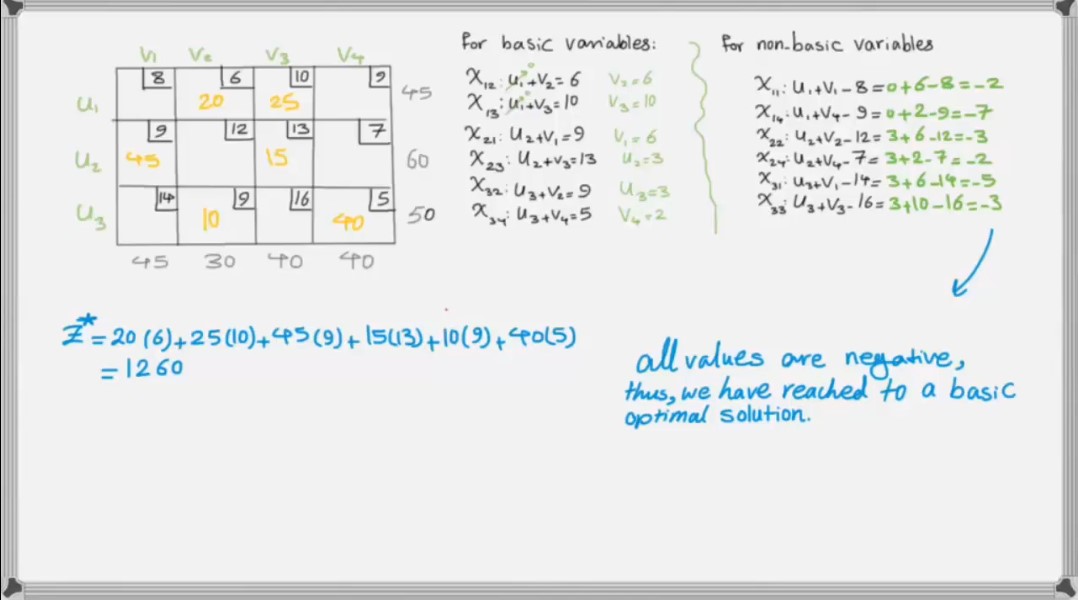 V1 V2 V3 V4
8 6 10 9
U1 20 25 45
9 12 13 7
U2 45 15 60
14 9 16 5
U3 10 40 50
45 30 40 40
For basic variables:
X12: U1+V2=6 V2=6
X13: U1+V3=10 V3=10
X21: U2+V1=9 V1=6
X23: U2+V3=13 U2=3
X32: U3+V2=9 U3=3
X34: U3+V4=5 V4=2
For non-basic variables
X11: U1+V1-8=0+6-8=-2
X14: U1+V4-9=0+2-9=-7
X22: U2+V2-12=3+6-12=-3
X24: U2+V4-7=3+2-7=-2
X31: U3+V1-14=3+6-14=-5
X33: U3+V3-16=3+10-16=-3
Z*=20(6)+25(10)+45(9)+15(13)+10(9)+40(5)
=1260
all values are negative,
thus, we have reached to a basic
optimal solution.